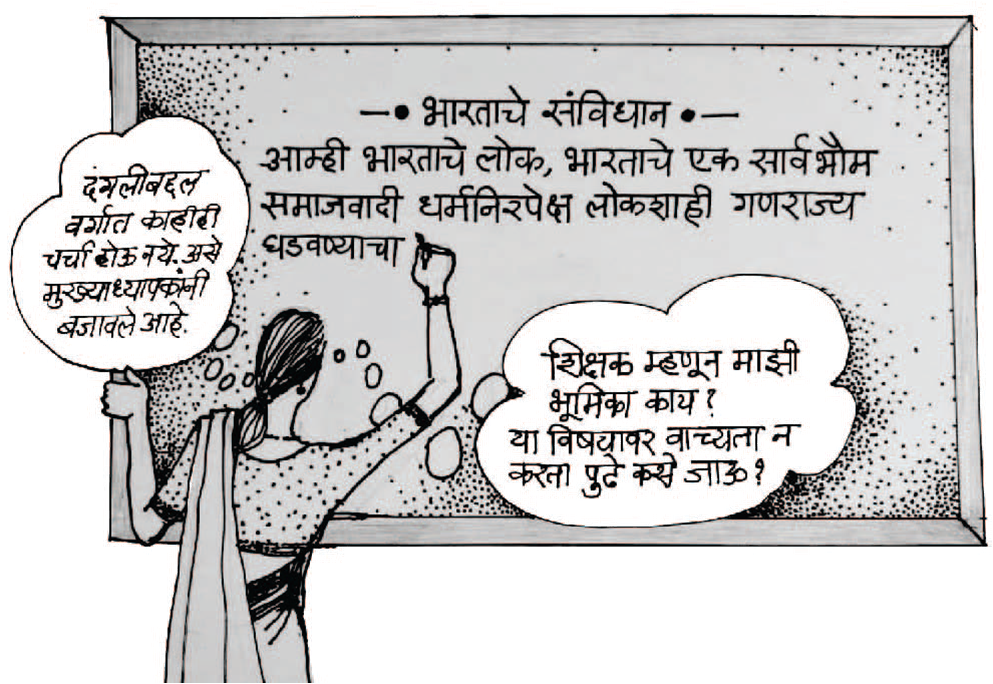 भारताचे संविधान
आम्ही भारताचे लोक, भारताचे एक सार्वभौम
समाजवादी धर्मनिरपेक्ष लोकशाही गणराज्य
घडवण्याचा
दंगलीबद्दल
वर्गात काहीही
चर्चा होऊ नये. असे
मुख्याध्यापकांनी
बजावले आहे.
शिक्षक म्हणून माझी
भूमिका काय?
या विषयावर वाच्यता न
करता पुढे कसे जाऊ?